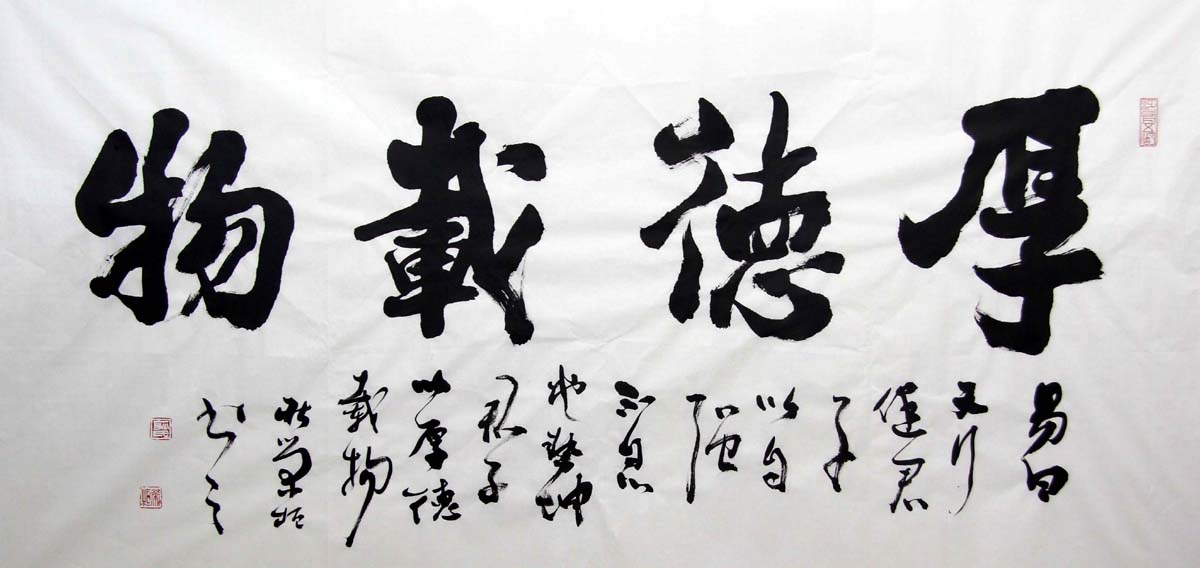 厚德載物
易曰
天行
健君
子
以自
强
不息
地勢坤
君子
以厚德
載物
書之